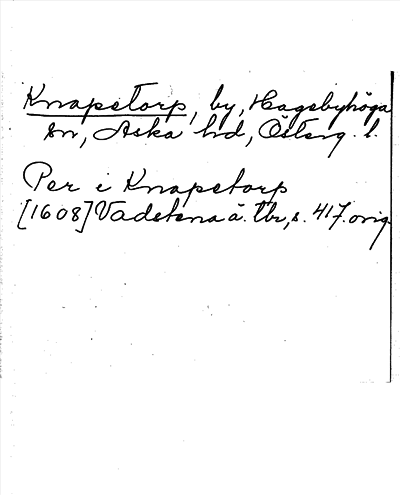 Knapstorp, by, Hagebyhöga
sn, Aska hd, Österg. l.
Per i Knapetorp
[1608] Vadstena ä. tbr, s. 417. orig